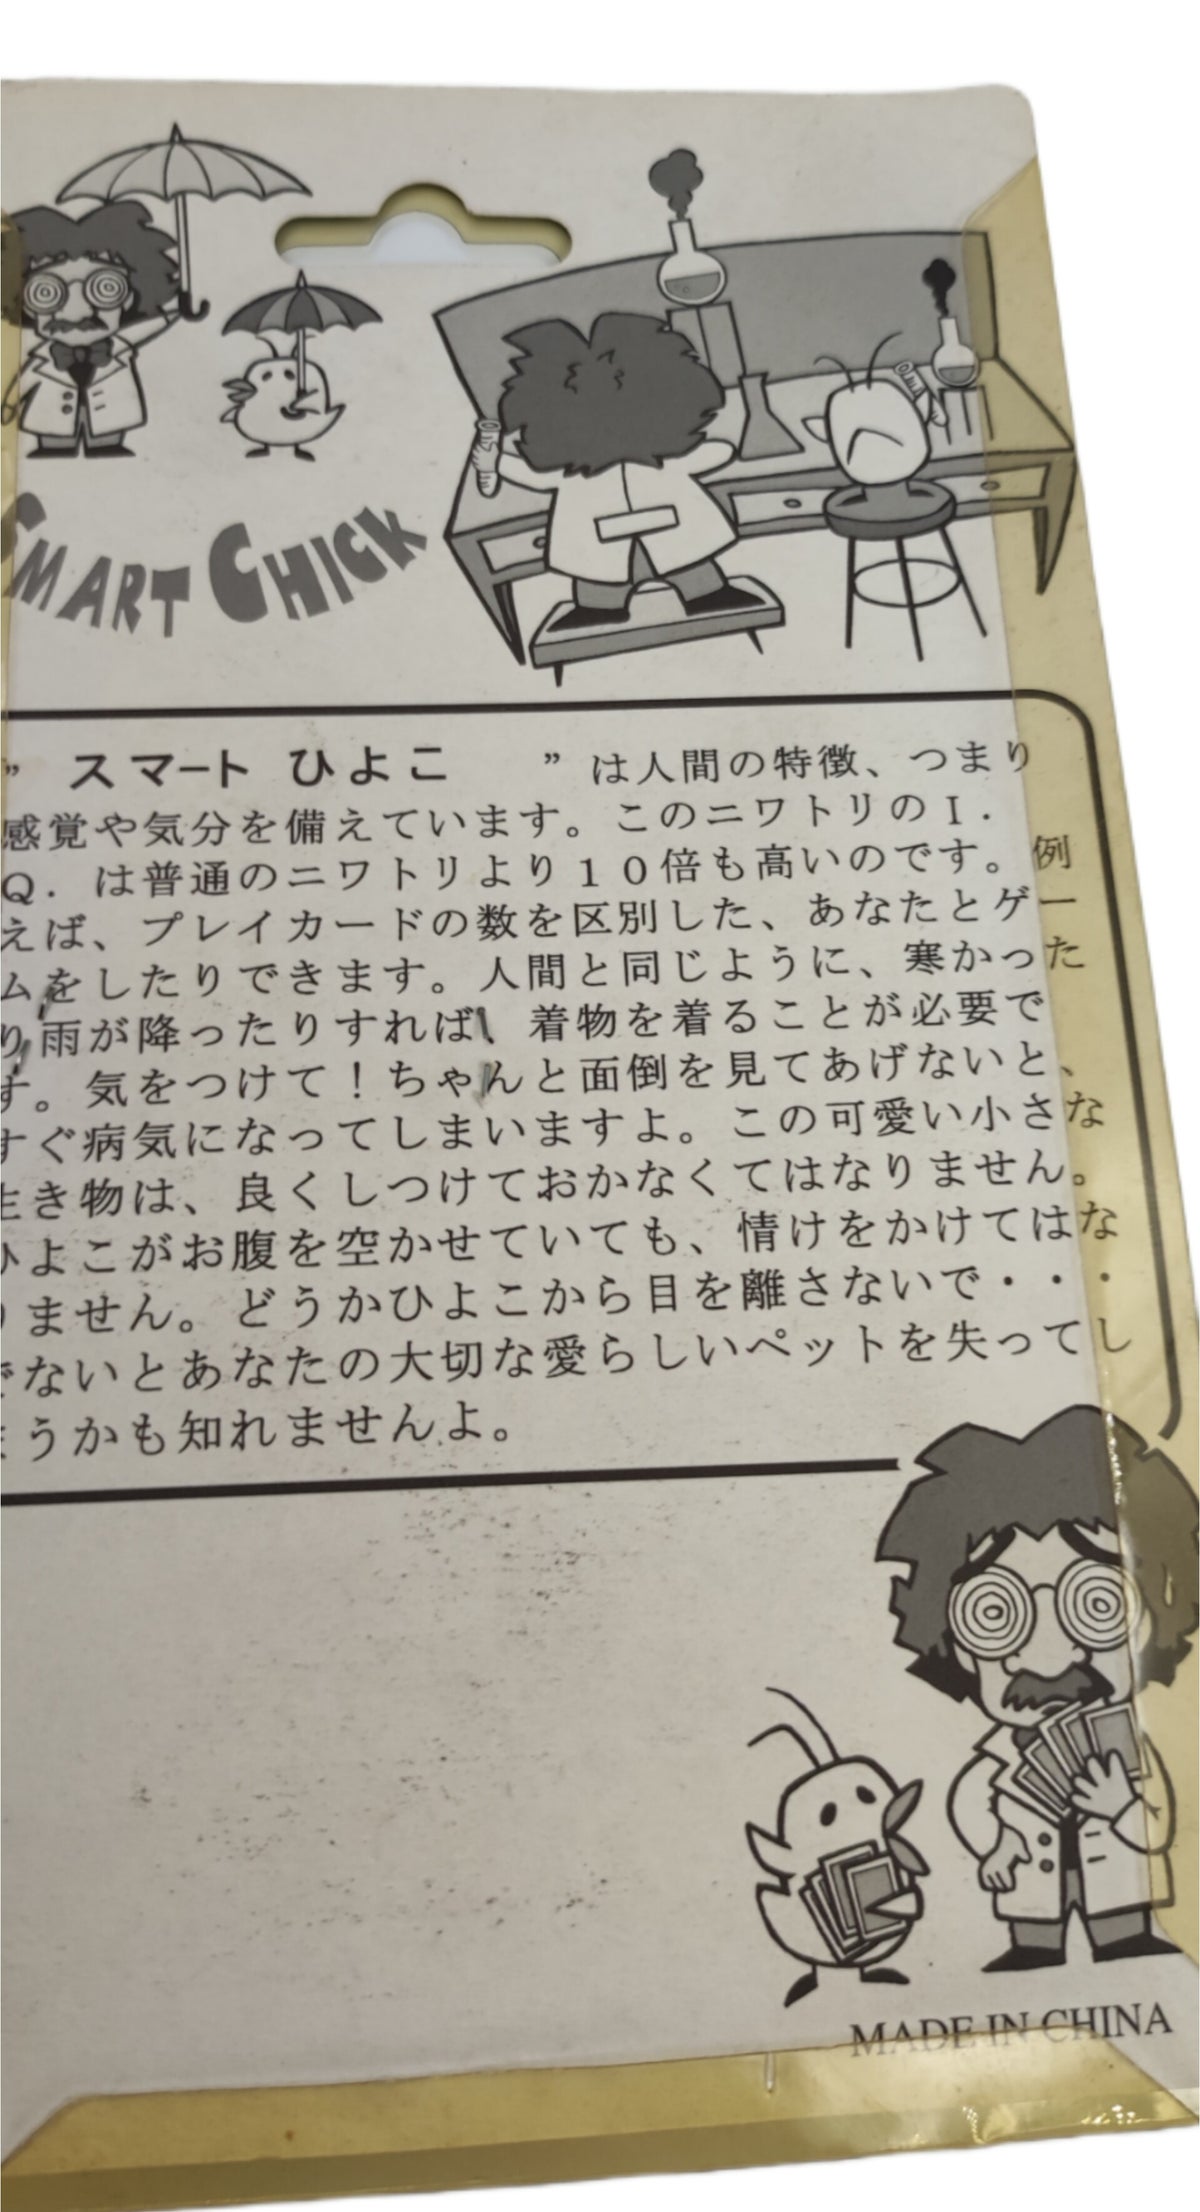 SMART CHICK
” スマート ひよこ ” は人間の特徴、つまり
感覚や気分を備えています。このニワトリのI.
Q. は普通のニワトリより10倍も高いのです。例
えば、プレイカードの数を区別した、あなたとゲー
ムをしたりできます。人間と同じように、寒かった
り雨が降ったりすれば、着物を着ることが必要で
す。気をつけて！ちゃんと面倒を見てあげないと、
すぐ病気になってしまいますよ。この可愛い小さな
生き物は、良くしつけておかなくてはなりません。
ひよこがお腹を空かせていても、情けをかけてはな
りません。どうかひよこから目を離さないで・・・
でないとあなたの大切な愛らしいペットを失ってし
まうかも知れませんよ。
MADE IN CHINA